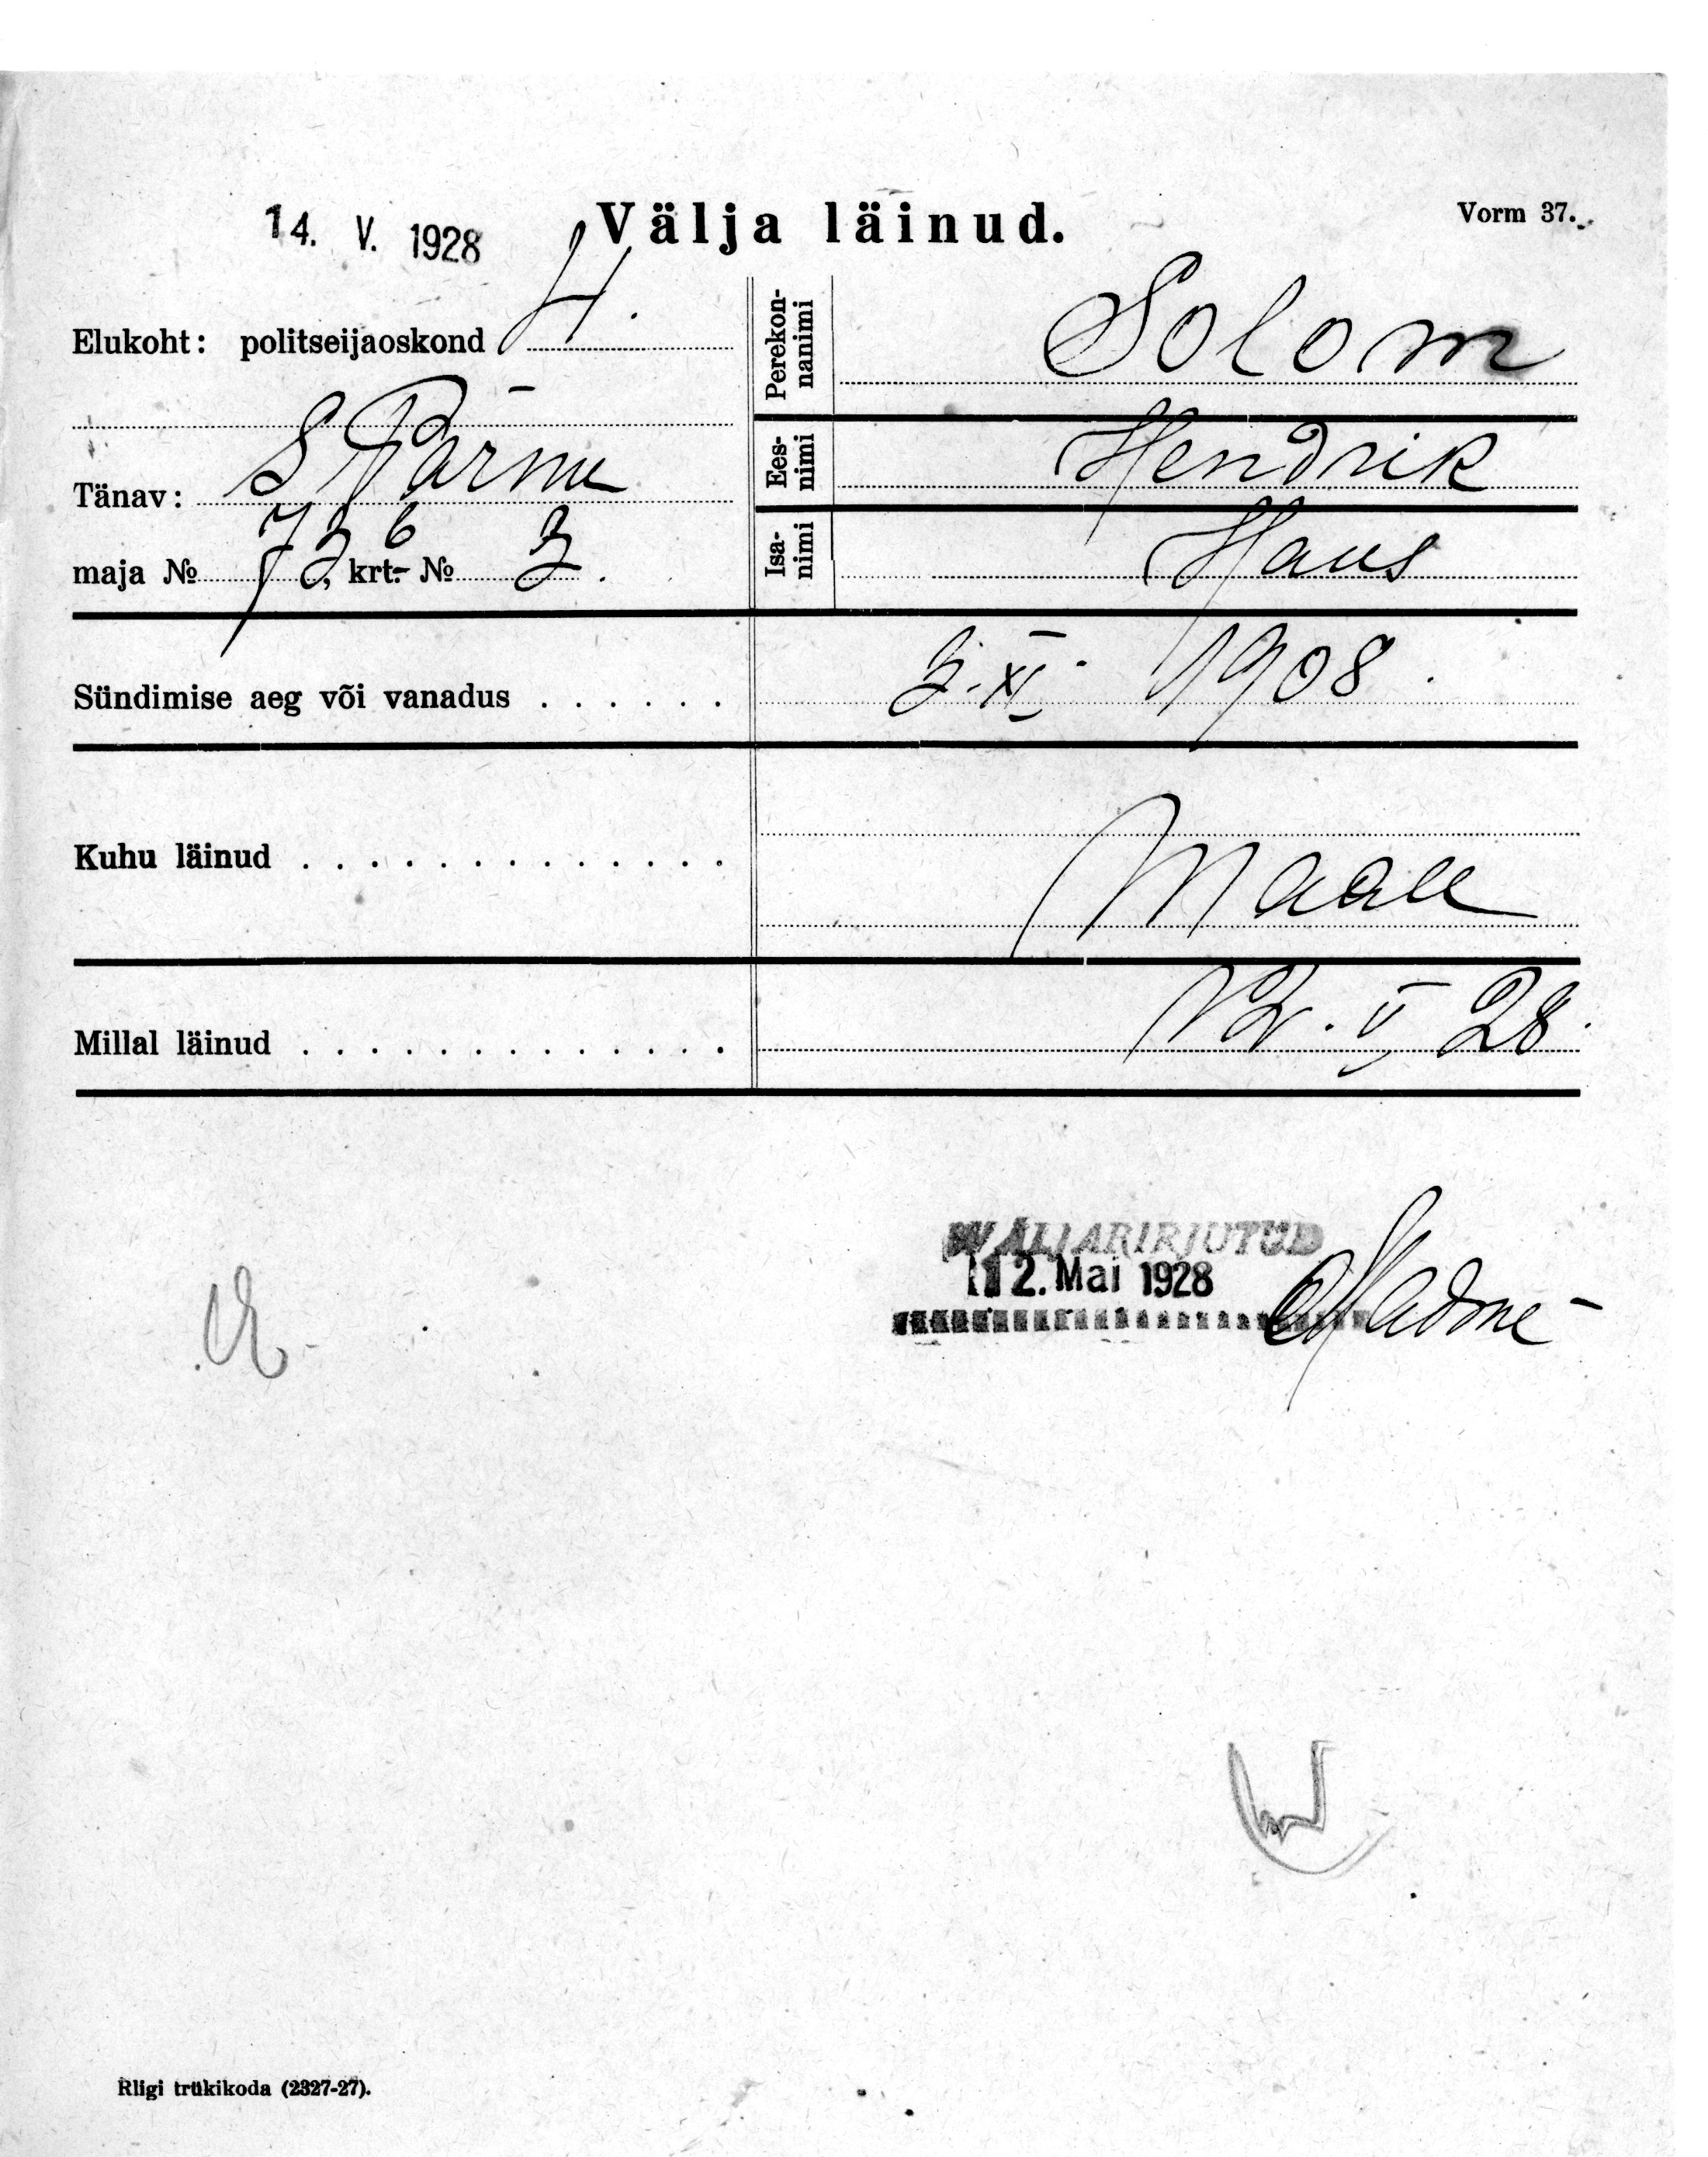 14. V. 1928
Välja läinud.
Vorm 37.
Elukoht: politseijaoskond 4.
S Pärnu
Tänav:
maja № 73 b, krt.- № 3.
Perekon-
nanimi
Solom
Ees-
nimi
Hendrik
Isa-
nimi
Hans
Sündimise aeg või vanadus . . . . . .
3. XI. 1908.
Kuhu läinud . . . . . . . . . . . . .
Maale
Millal läinud . . . . . . . . . . . . .
12. V 28.
VÄLJAKIRJUTUD
12. Mai 1928
Riigi trükikoda (2327-27).